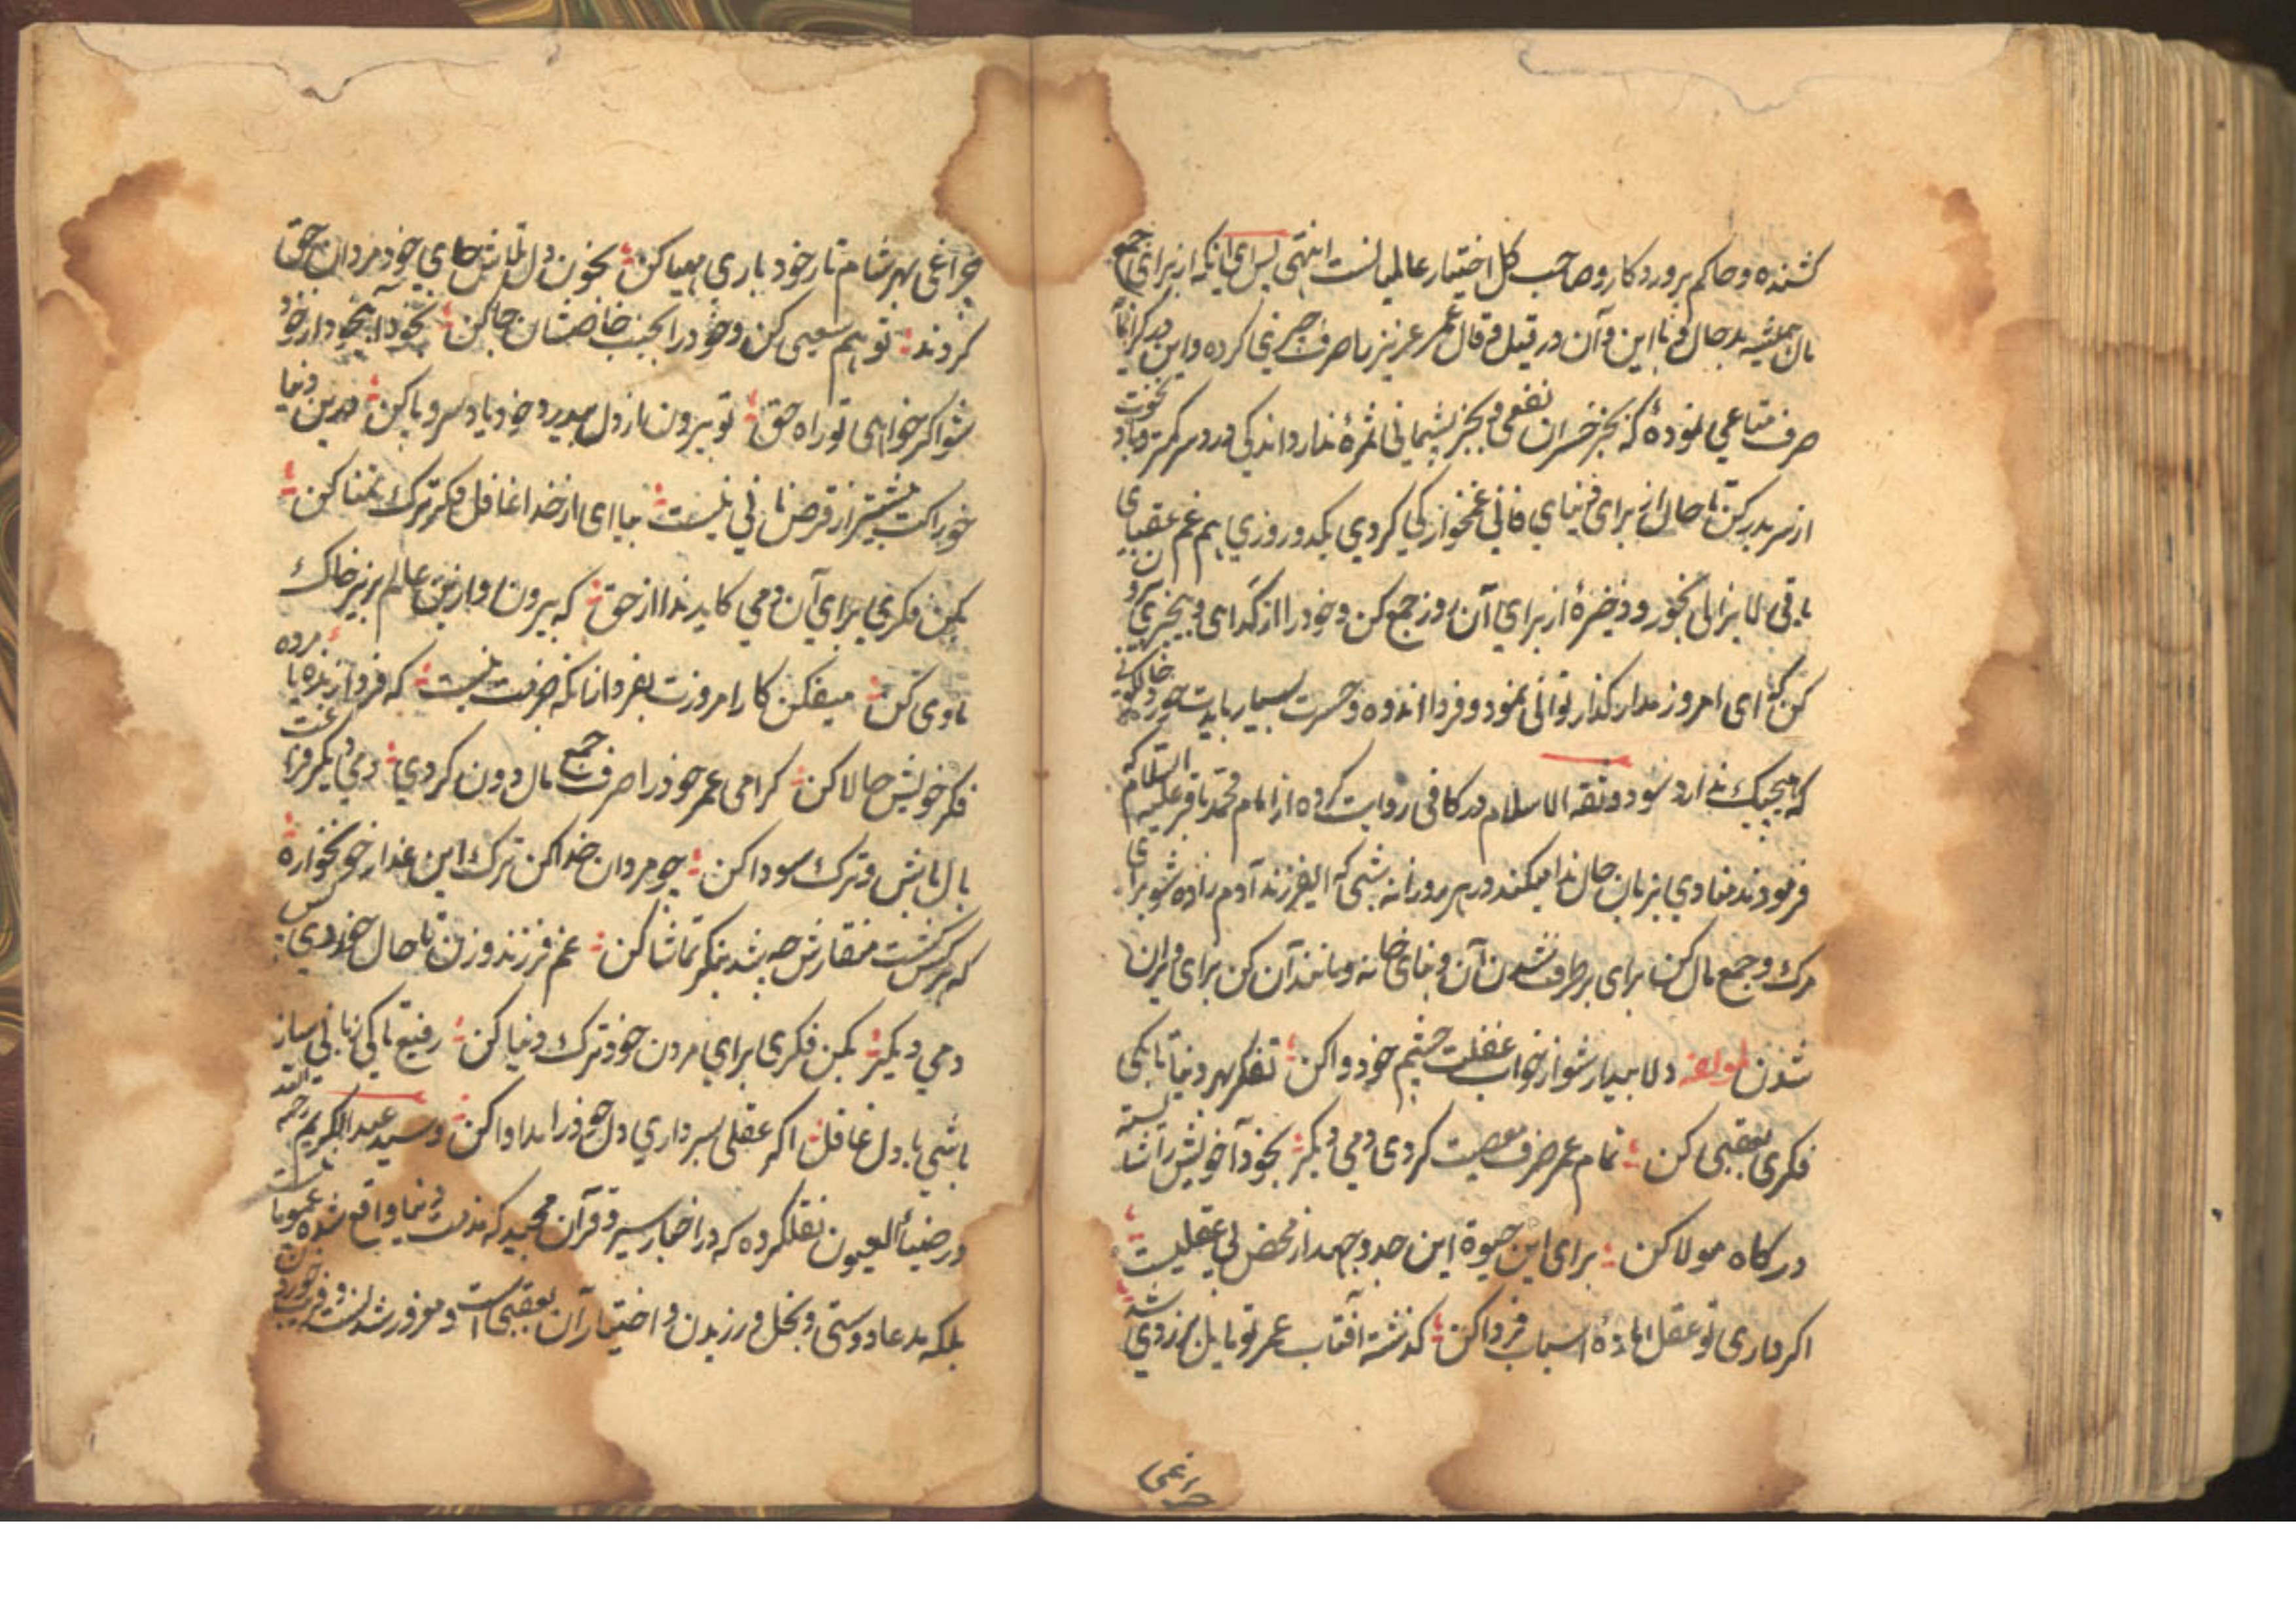 کشنده و حاکم پروردکار و صاحب کل اختیار عالمیانست انتهی پس ای آنکه از برای جمع
مال همیشه در جدال و با این و آن در قیل و قال عمر عزیز را صرف چیزی کرده و این در کرانمایه
صرف متاعی نموده که بجز خسران نفعی و بجز پشیمانی ثمرهٔ ندارد اندکی در سر باد نخوت
از سر بدر کن تا حال از برای دنیای فانی غمخوارکی کردی یکدو روزی هم غم عقبای
باقی لا یزالی بخور و ذخیرهٔ از برای آن روز جمع کن و خود را از کدای و بیخیری
کن که ای امروز مدار کذار توانی نمود و فردا اندوه و حسرت بسیار باید خورد
که هیچیک ندارد سود و ثقه الاسلام در کافی روایت کرده از امام محمد باقر علیه السلام که
فرمودند منادی بزبان حال ندا میکند در هر روزانه شبی که ای فرزند آدم زاده شو برای
مرک و جمع مال کن برای برطرف شدن آن و بنای خانه و مانند آن کن برای ویران
شدن لمولفه دلا بیدار شو از خواب غفلت چشم خود وا کن تفکر بهر دنیا تا بکی
فکری بعقبی کن تمام عمر صرف معصیت کردی دمی دیکر بخود آ خویش را شایسته
درکاه مولا کن برای این حیوة این جد و جهد از محض بی عقلیست
اکر داری تو عقل امادهٔ اسباب فردا کن کذشته آفتاب عمر تو مایل بزردی شد
چراغی
چراغی بهر شام تار خود باری مهیا کن بخون دل تلاش جای خود مردان حق
کردند تو هم سعیی کن و خود را بجنب خاصتان جا کن بخود آ بیخود از خود
شو اکر خواهی تو راه حق تو بیرون ناز دل و خود یاد سر و پا کن درین دنیا
خوراکت بیشتر از قرص نانی نیست بیا ای از خدا غافل فکر ترک تمنا کن
بکن فکری برای آن دمی کاید ندا از حق که بیرون او ازین عالم بزیر خاک
ماوی کن میفکن کار امروزت بفردا زانکه فرصت نیست که فردا زنده یا مرده
فکر خویش حالا کن کرامی عمر خود را صرف جمع مال دون کردی دمی دیکر
مال باش و ترک سودا کن چو مردان خدا کن ترک این غدار خونخواره
که هر کس کشت منقارش چه شد بنکر تماشا کن غم فرزند و زن تا حال خوردی بس
دمی دیکر بکن فکری برای مردن خود ترک دنیا کن رفیع تا کی زبانی ساز
باشی با دل غافل اکر عقلی بسر داری دل خود را مداوا کن و سید عبد الکریم رحمه الله
در ضیاء العیون نقلکرده که در اخبار سیر و قرآن مجید که مذمت دنیا واقع شده عمومیا
بلکه مدعا دوستی و بخل ورزیدن و اختیار آن بعقبی است و مغرور شدنست و فریب خوردن